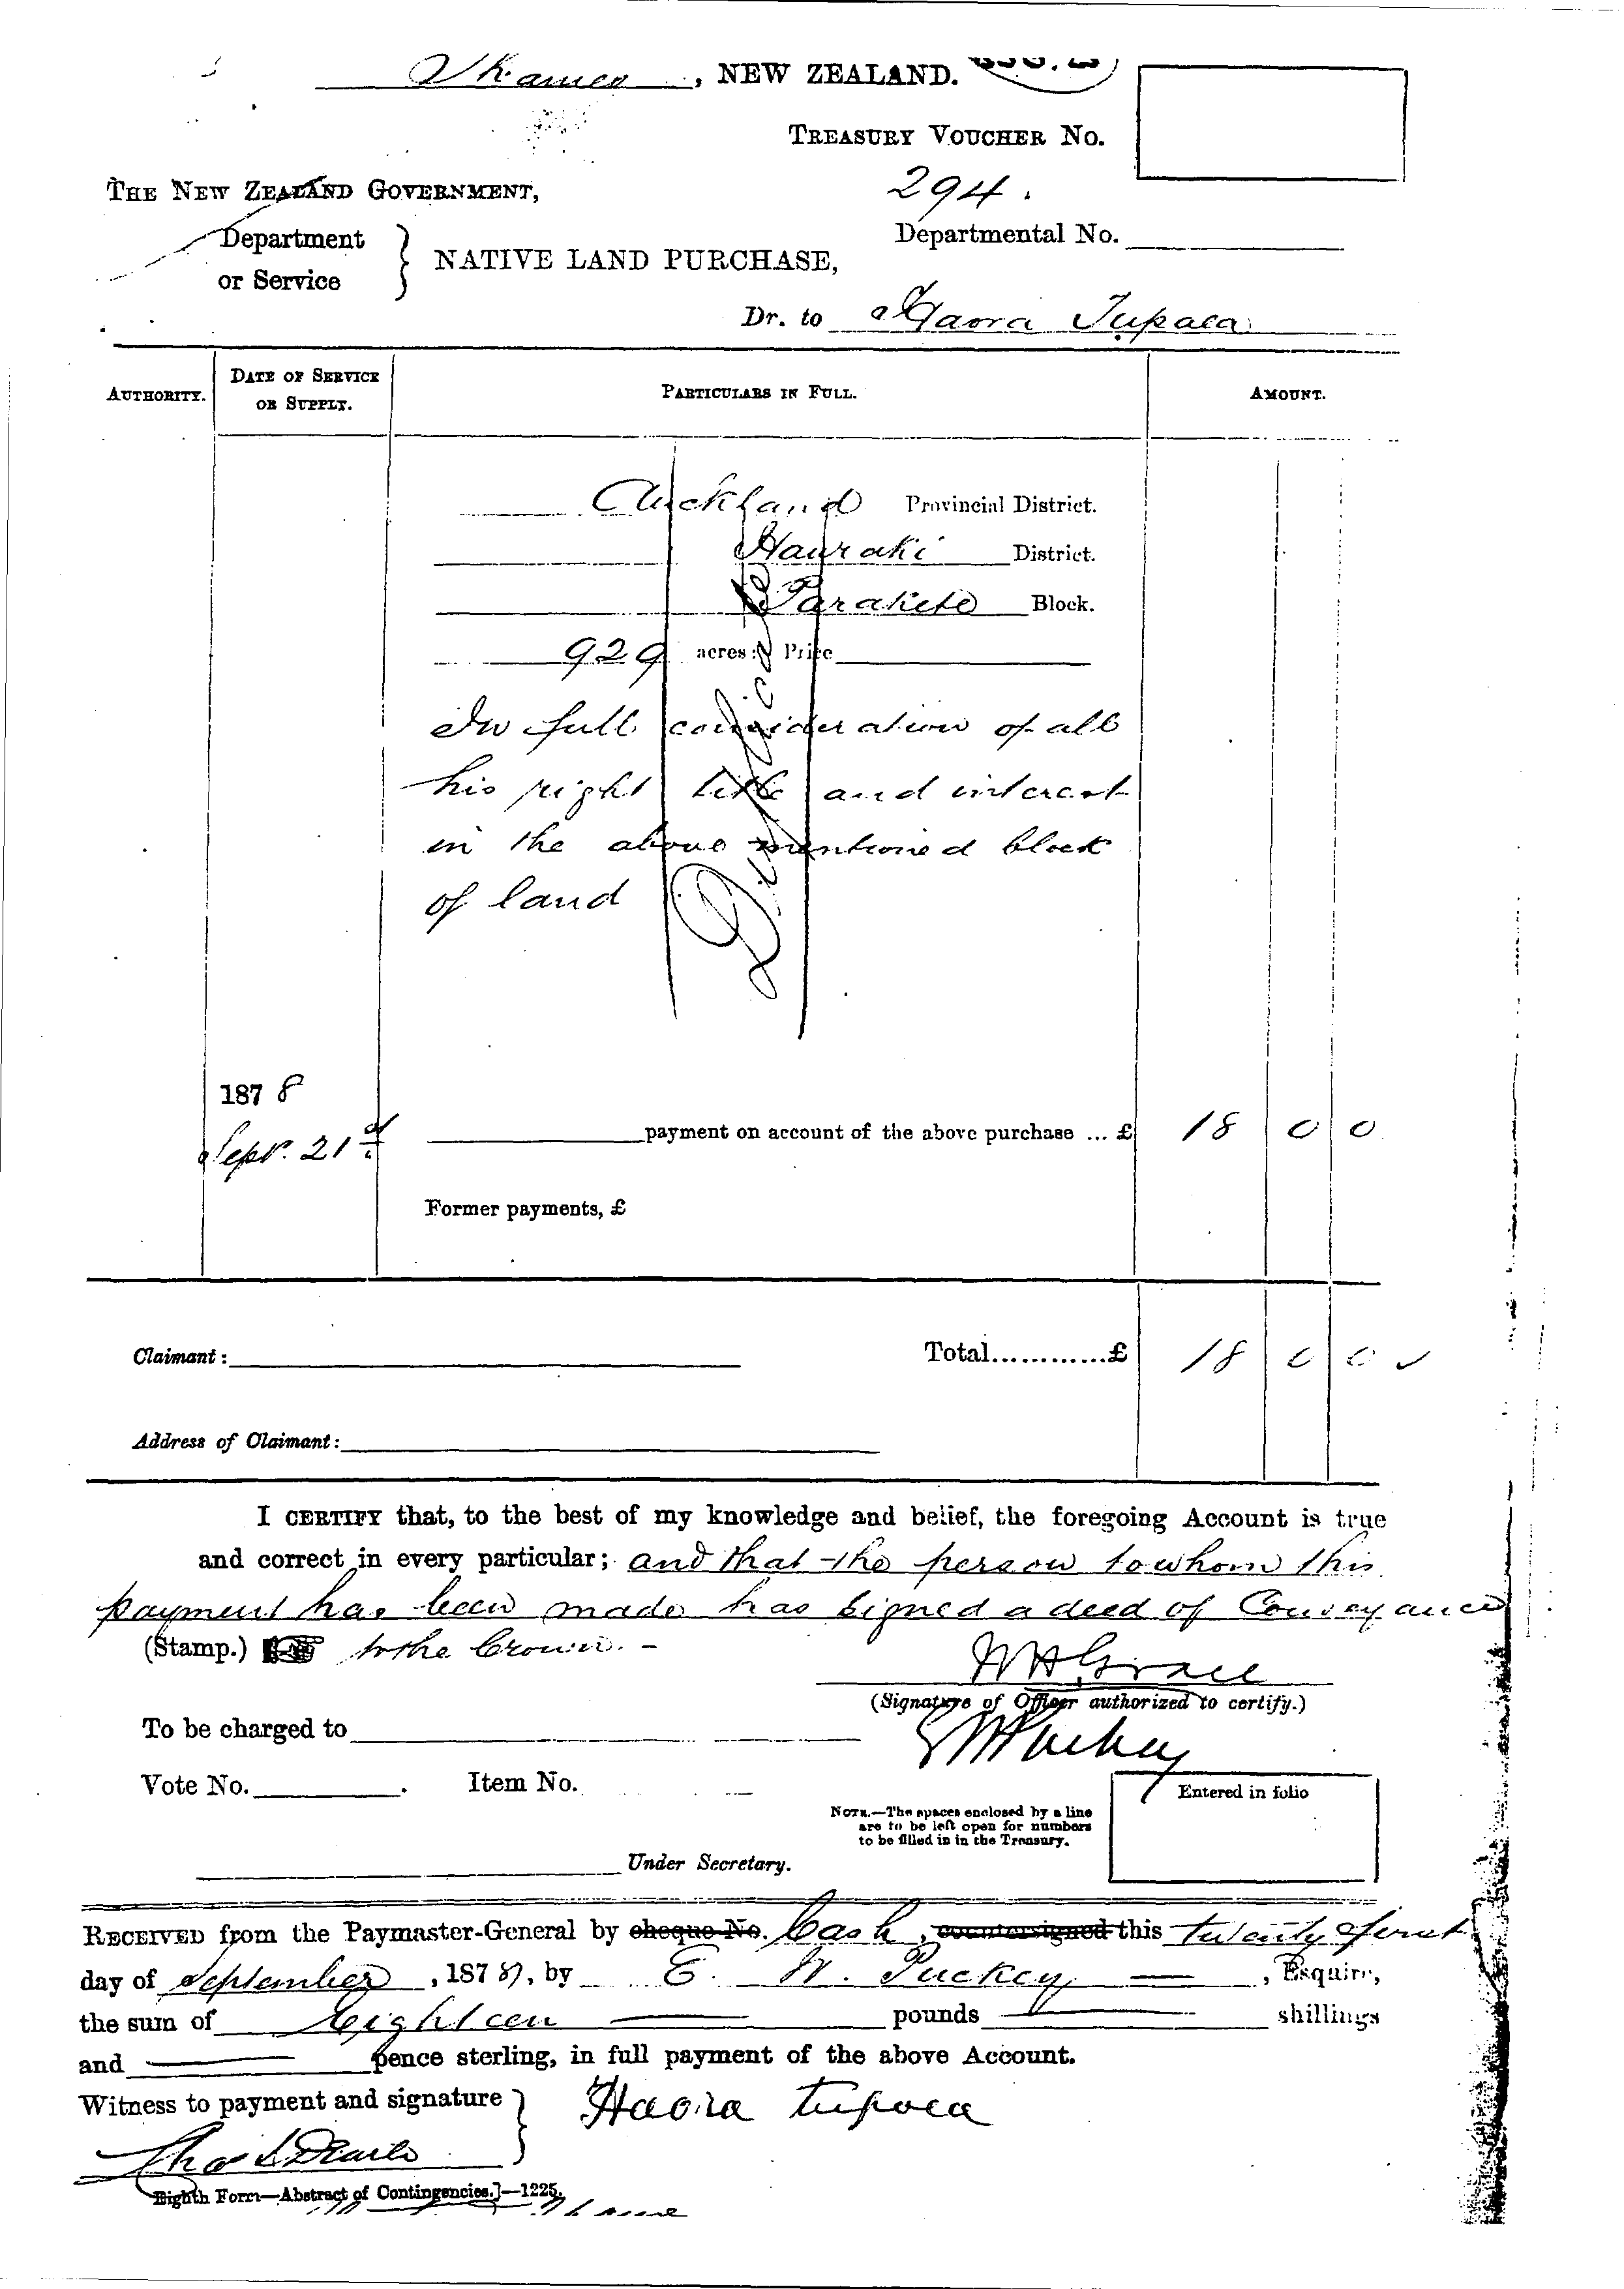 Thames, NEW ZEALAND.
TREASURY VOUCHER No.
294.
THE NEW ZEALAND GOVERNMENT,
Department or Service } NATIVE LAND PURCHASE,
Departmental No.
Dr. to Haora Tupaea
AUTHORITY. DATE OF SERVICE OR SUPPLY. PARTICULARS IN FULL. AMOUNT.
Auckland Provincial District.
Hauraki District.
Parakete Block.
929 acres: Price
In full consideration of all
his right title and interest
in the above mentioned block
of land
Duplicate
1878
Sepr. 21st payment on account of the above purchase ... £ 18 0 0
Former payments, £
Claimant: Total............£ 18 0 0
Address of Claimant:
I CERTIFY that, to the best of my knowledge and belief, the foregoing Account is true
and correct in every particular; and that the person to whom this
payment has been made has signed a deed of Conveyance
(Stamp.) to the Crown. -
W H Grace
(Signature of Officer authorized to certify.)
E W Puckey
To be charged to
Vote No. . Item No.
Entered in folio
NOTE.—The spaces enclosed by a line
are to be left open for numbers
to be filled in in the Treasury.
Under Secretary.
RECEIVED from the Paymaster-General by cheque No. Cash, countersigned this twenty first
day of September, 1878, by E. W. Puckey, Esquire,
the sum of Eighteen pounds shillings
and pence sterling, in full payment of the above Account.
Witness to payment and signature } Haora tupaea
Eighth Form—Abstract of Contingencies.]—1225.